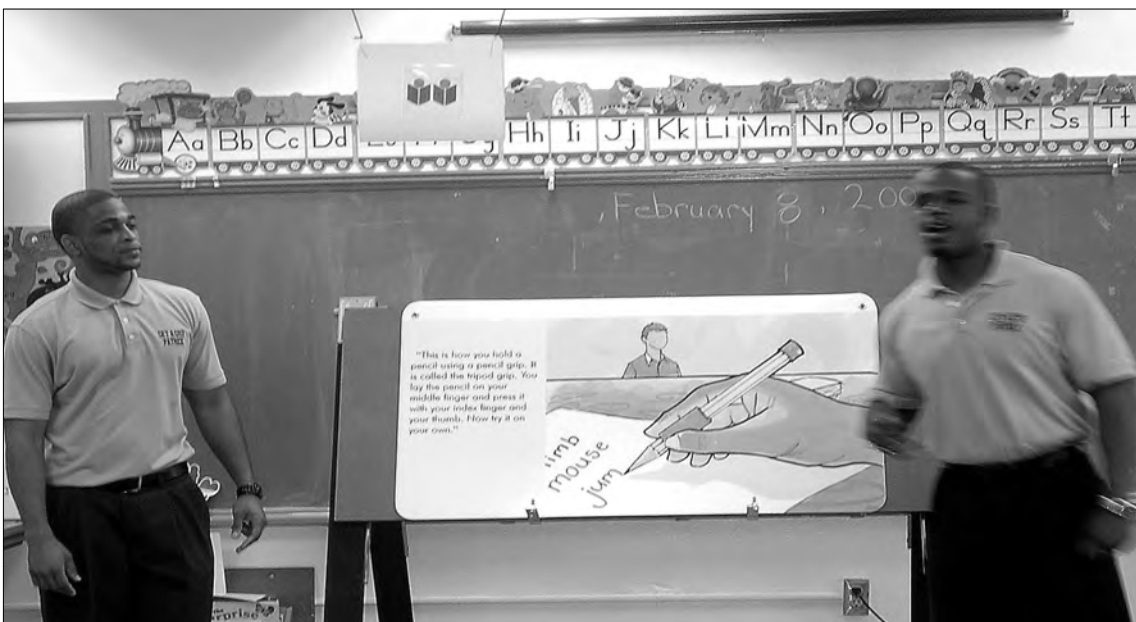 Aa Bb Cc Dd Hh Ii Jj Kk Ll Mm Nn Oo Pp Qq Rr Ss Tt
February 8, 200
"This is how you hold a
pencil using a pencil grip. It
is called the tripod grip. You
lay the pencil on your
middle finger and press it
with your index finger and
your thumb. Now try it on
your own."
limb
mouse
jum
GET A GRIP
PATRICK